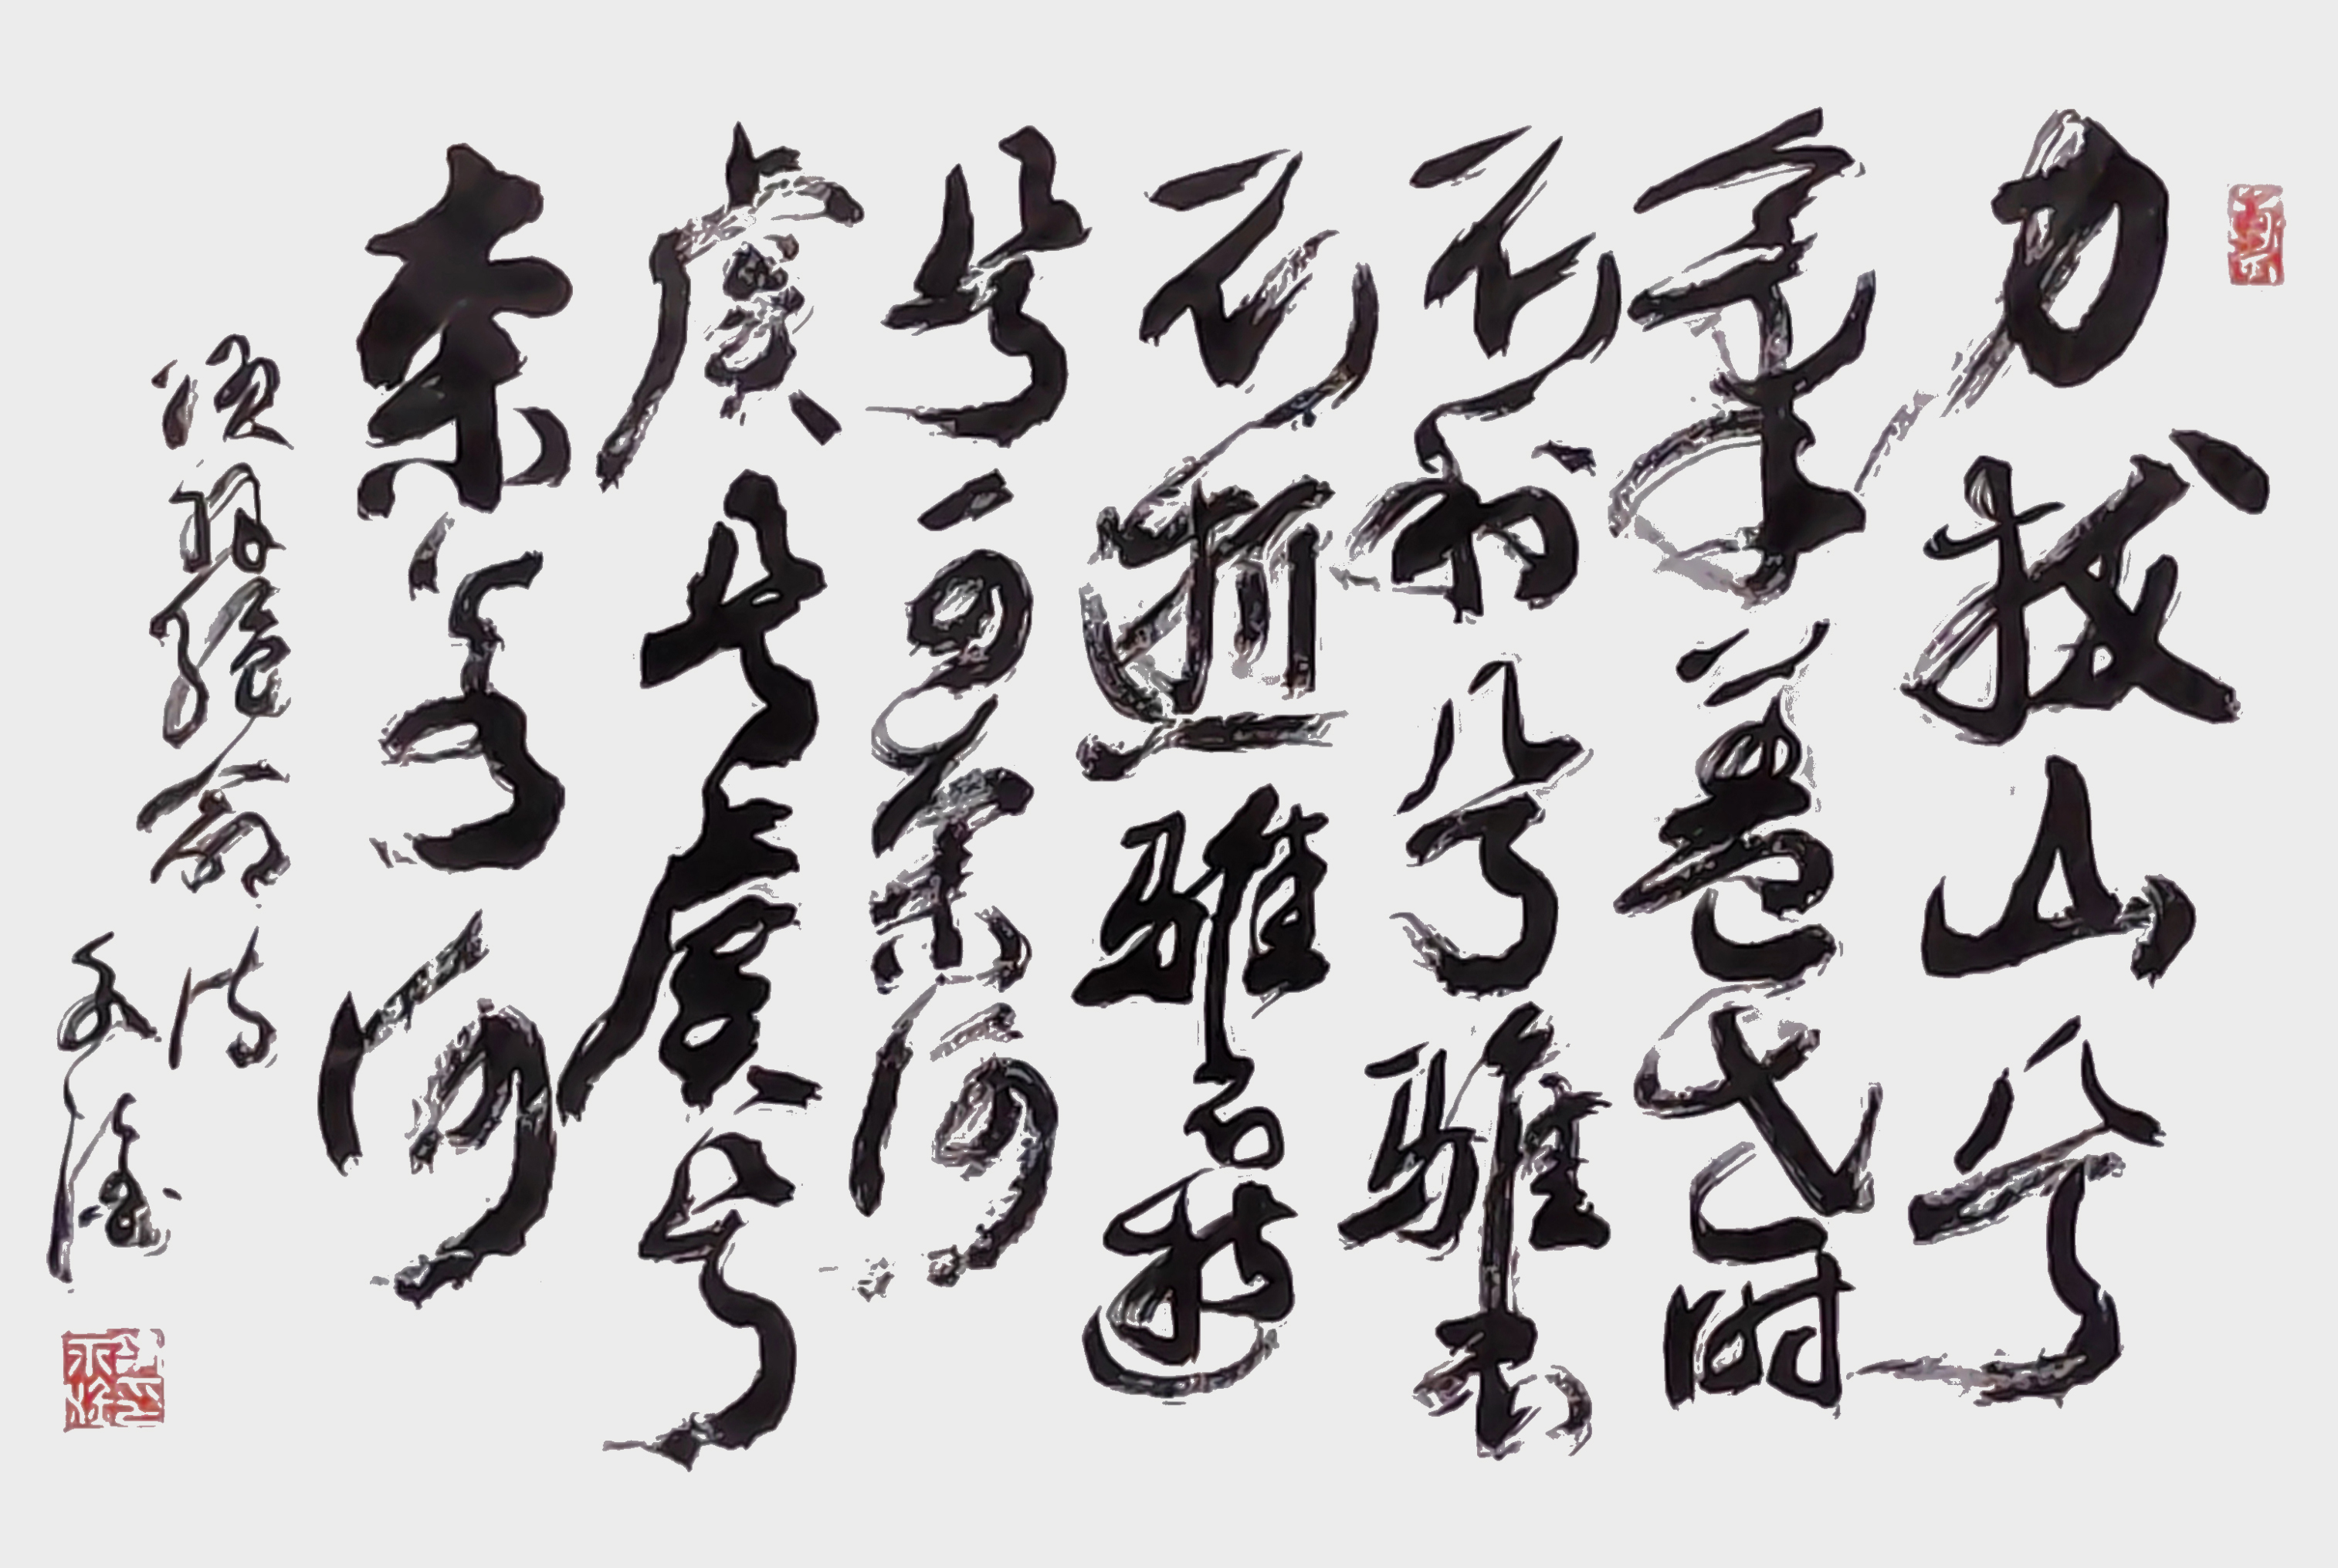 力拔山兮
氣蓋世时
不利兮骓不
不逝骓不逝
兮可奈何
虞兮虞兮
奈若何
项羽绝命诗